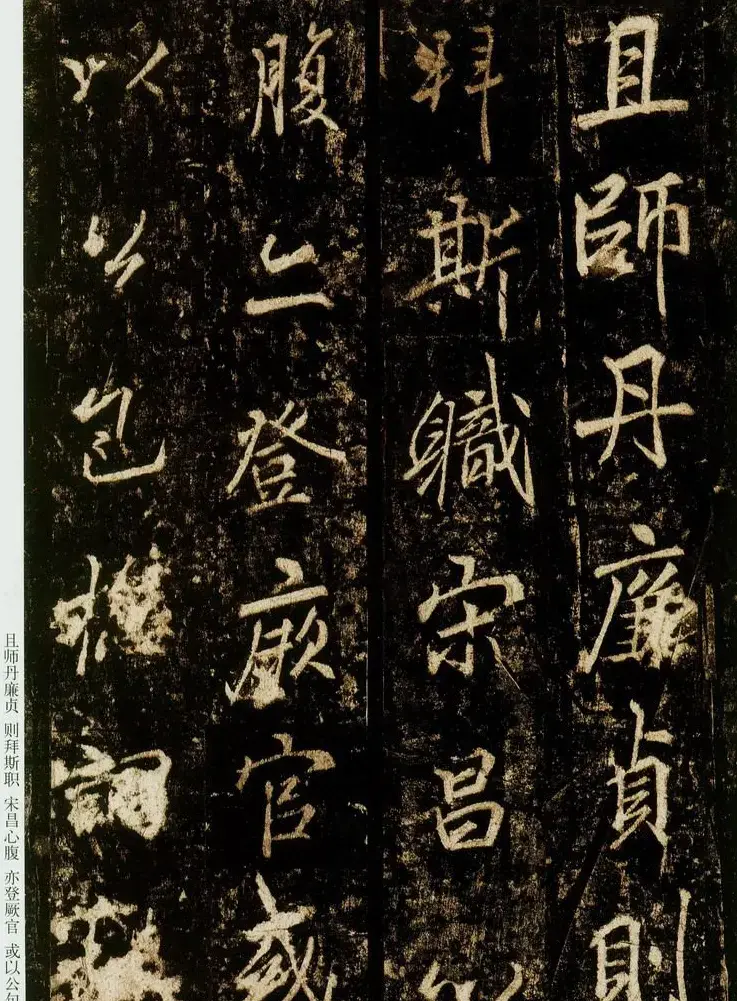 且師丹廉貞則
拜斯職宋昌心
腹亦登厥官或
以公包權詞
且师丹廉贞 则拜斯职 宋昌心腹 亦登厥官 或以公